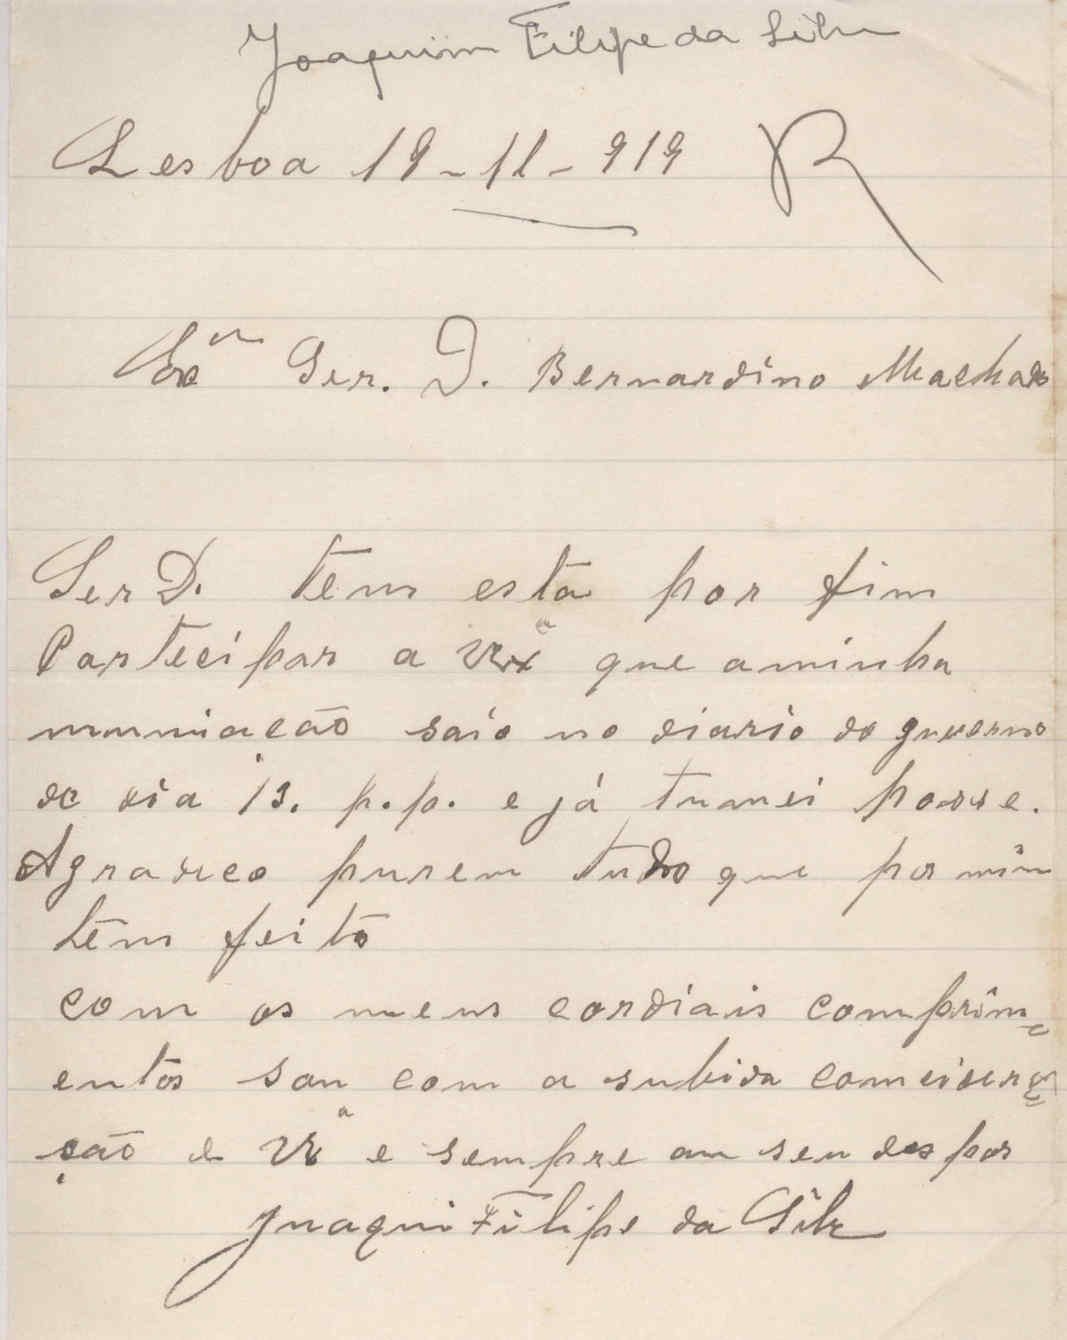 Joaquim Filipe da Silva
Lesboa 19-11-919 R
Ex.m Ser. D. Bernardino Machado
Ser D. tem esta por fim
Partecipar a VEx.a que a minha
numiação saío no diario do guverno
de dia 13. p.p. e já tumei posse.
Agradeco purem tudo que por mim
têm feito
com os meus cordíais comprím=
entos sou com a subida comcidera=
ção e VE.a e sempre au seu despor
Juaqui Filipe da Silv